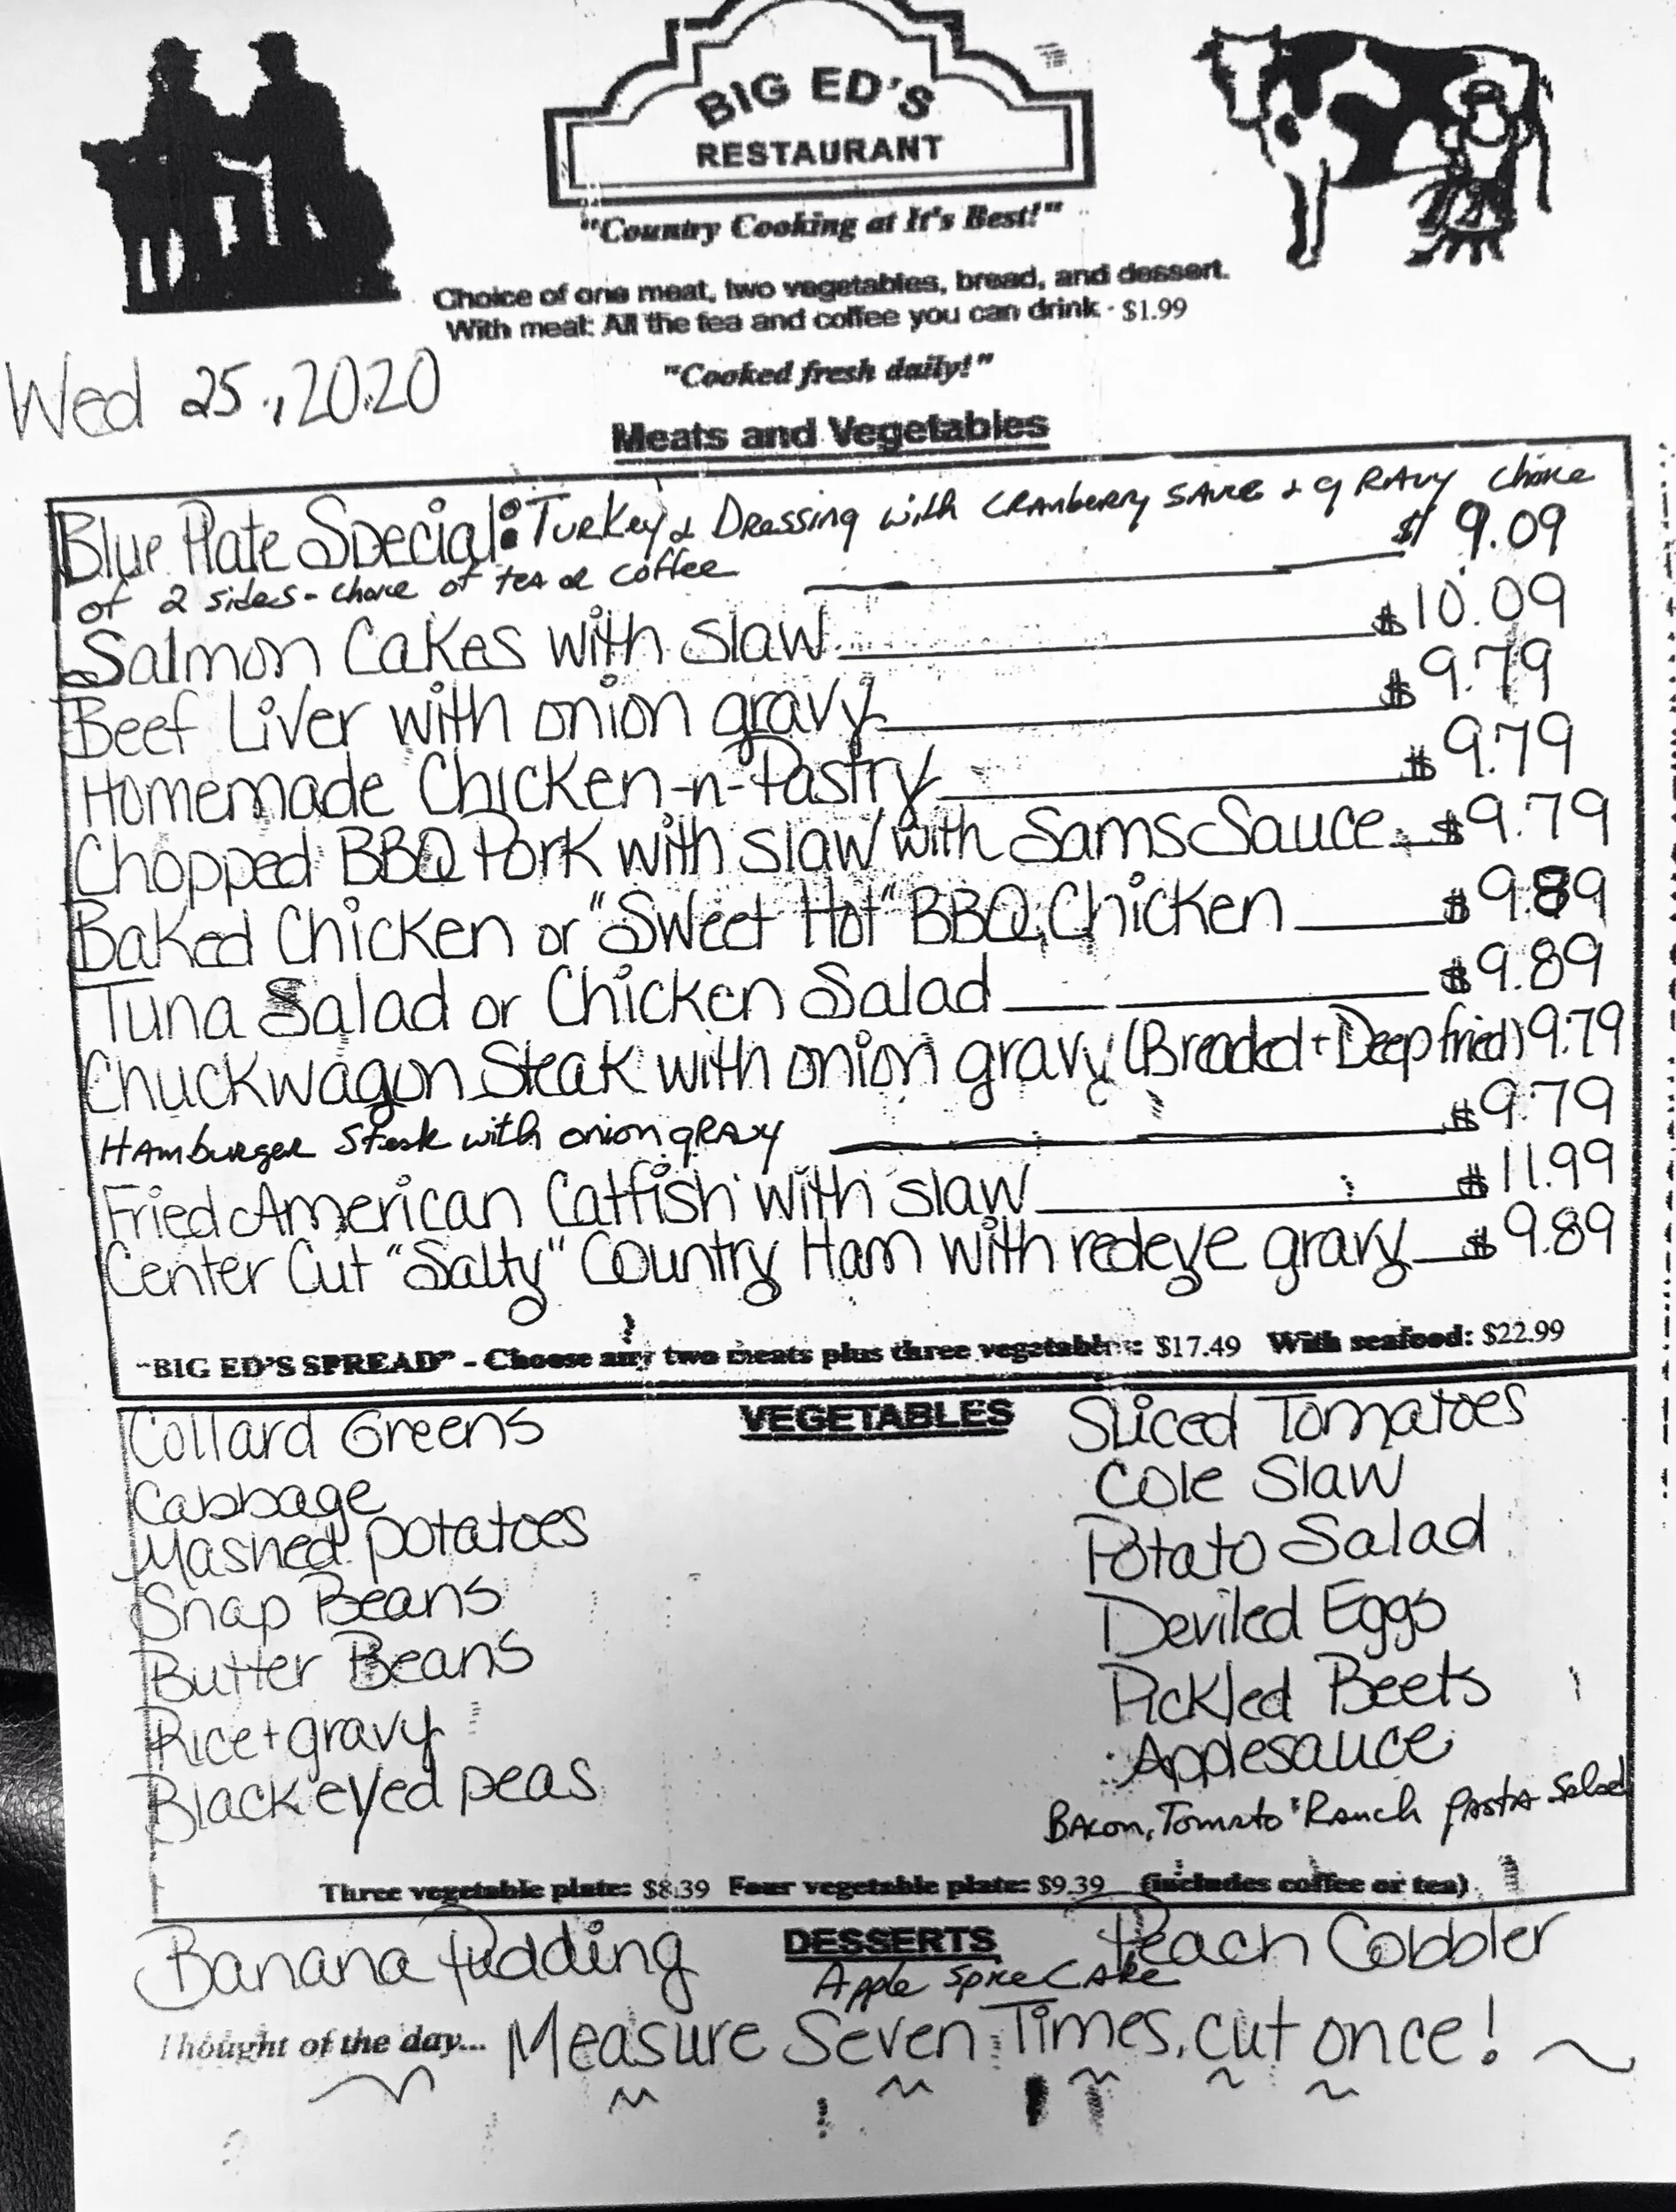 BIG ED'S
RESTAURANT
"Country Cooking at It's Best!"
Choice of one meat, two vegetables, bread, and dessert.
With meal: All the tea and coffee you can drink - $1.99
Wed 25., 2020
"Cooked fresh daily!"
Meats and Vegetables
Blue Plate Special: Turkey & Dressing with CRANberry SAUCE & gRAvy choice
of 2 sides - choice of tea or coffee $9.09
Salmon Cakes with slaw $10.09
Beef Liver with onion gravy $9.79
Homemade Chicken-n-Pastry $9.79
Chopped BBQ Pork with slaw with Sams Sauce $9.79
Baked Chicken or "Sweet Hot" BBQ Chicken $9.89
Tuna Salad or Chicken Salad $9.89
Chuckwagon Steak with onion gravy (Breaded + Deep fried) 9.79
HAmburger Steak with onion gRAvy $9.79
Fried American Catfish with slaw $11.99
Center Cut "Salty" Country Ham with redeye gravy $9.89
"BIG ED'S SPREAD" - Choose any two meats plus three vegetables: $17.49 With seafood: $22.99
VEGETABLES
Collard Greens
Cabbage
Mashed potatoes
Snap Beans
Butter Beans
Rice + gravy
Black eyed peas
Sliced Tomatoes
Cole Slaw
Potato Salad
Deviled Eggs
Pickled Beets
Applesauce
BAcon, Tomato & Ranch PAstA Salad
Three vegetable plate: $8.39 Four vegetable plate: $9.39 (includes coffee or tea)
DESSERTS
Banana Pudding
Apple Spice CAke
Peach Cobbler
Thought of the day... Measure Seven Times, cut once!